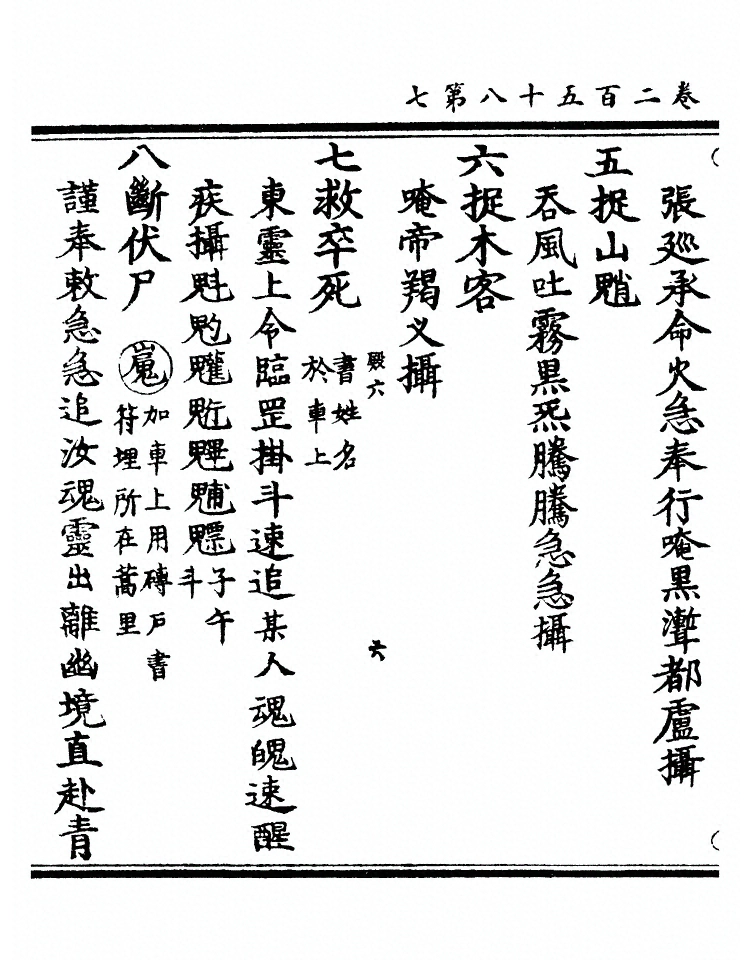 卷二百五十八第七
張廵承命火急奉行唵黑聻都盧攝
五捉山魈
吞風吐霧黑炁騰騰急急攝
六捉木客
唵帝羯义攝
殿六　六
七救卒死
書姓名
於車上
東靈上令臨罡掛斗速追某人魂魄速醒
疾攝魁𩲃䰱䰢魓𩳐魒
子午
斗
八斷伏尸
加車上用磚戶書
符埋所在蒿里
謹奉敕急急追汝魂靈出離幽境直赴青